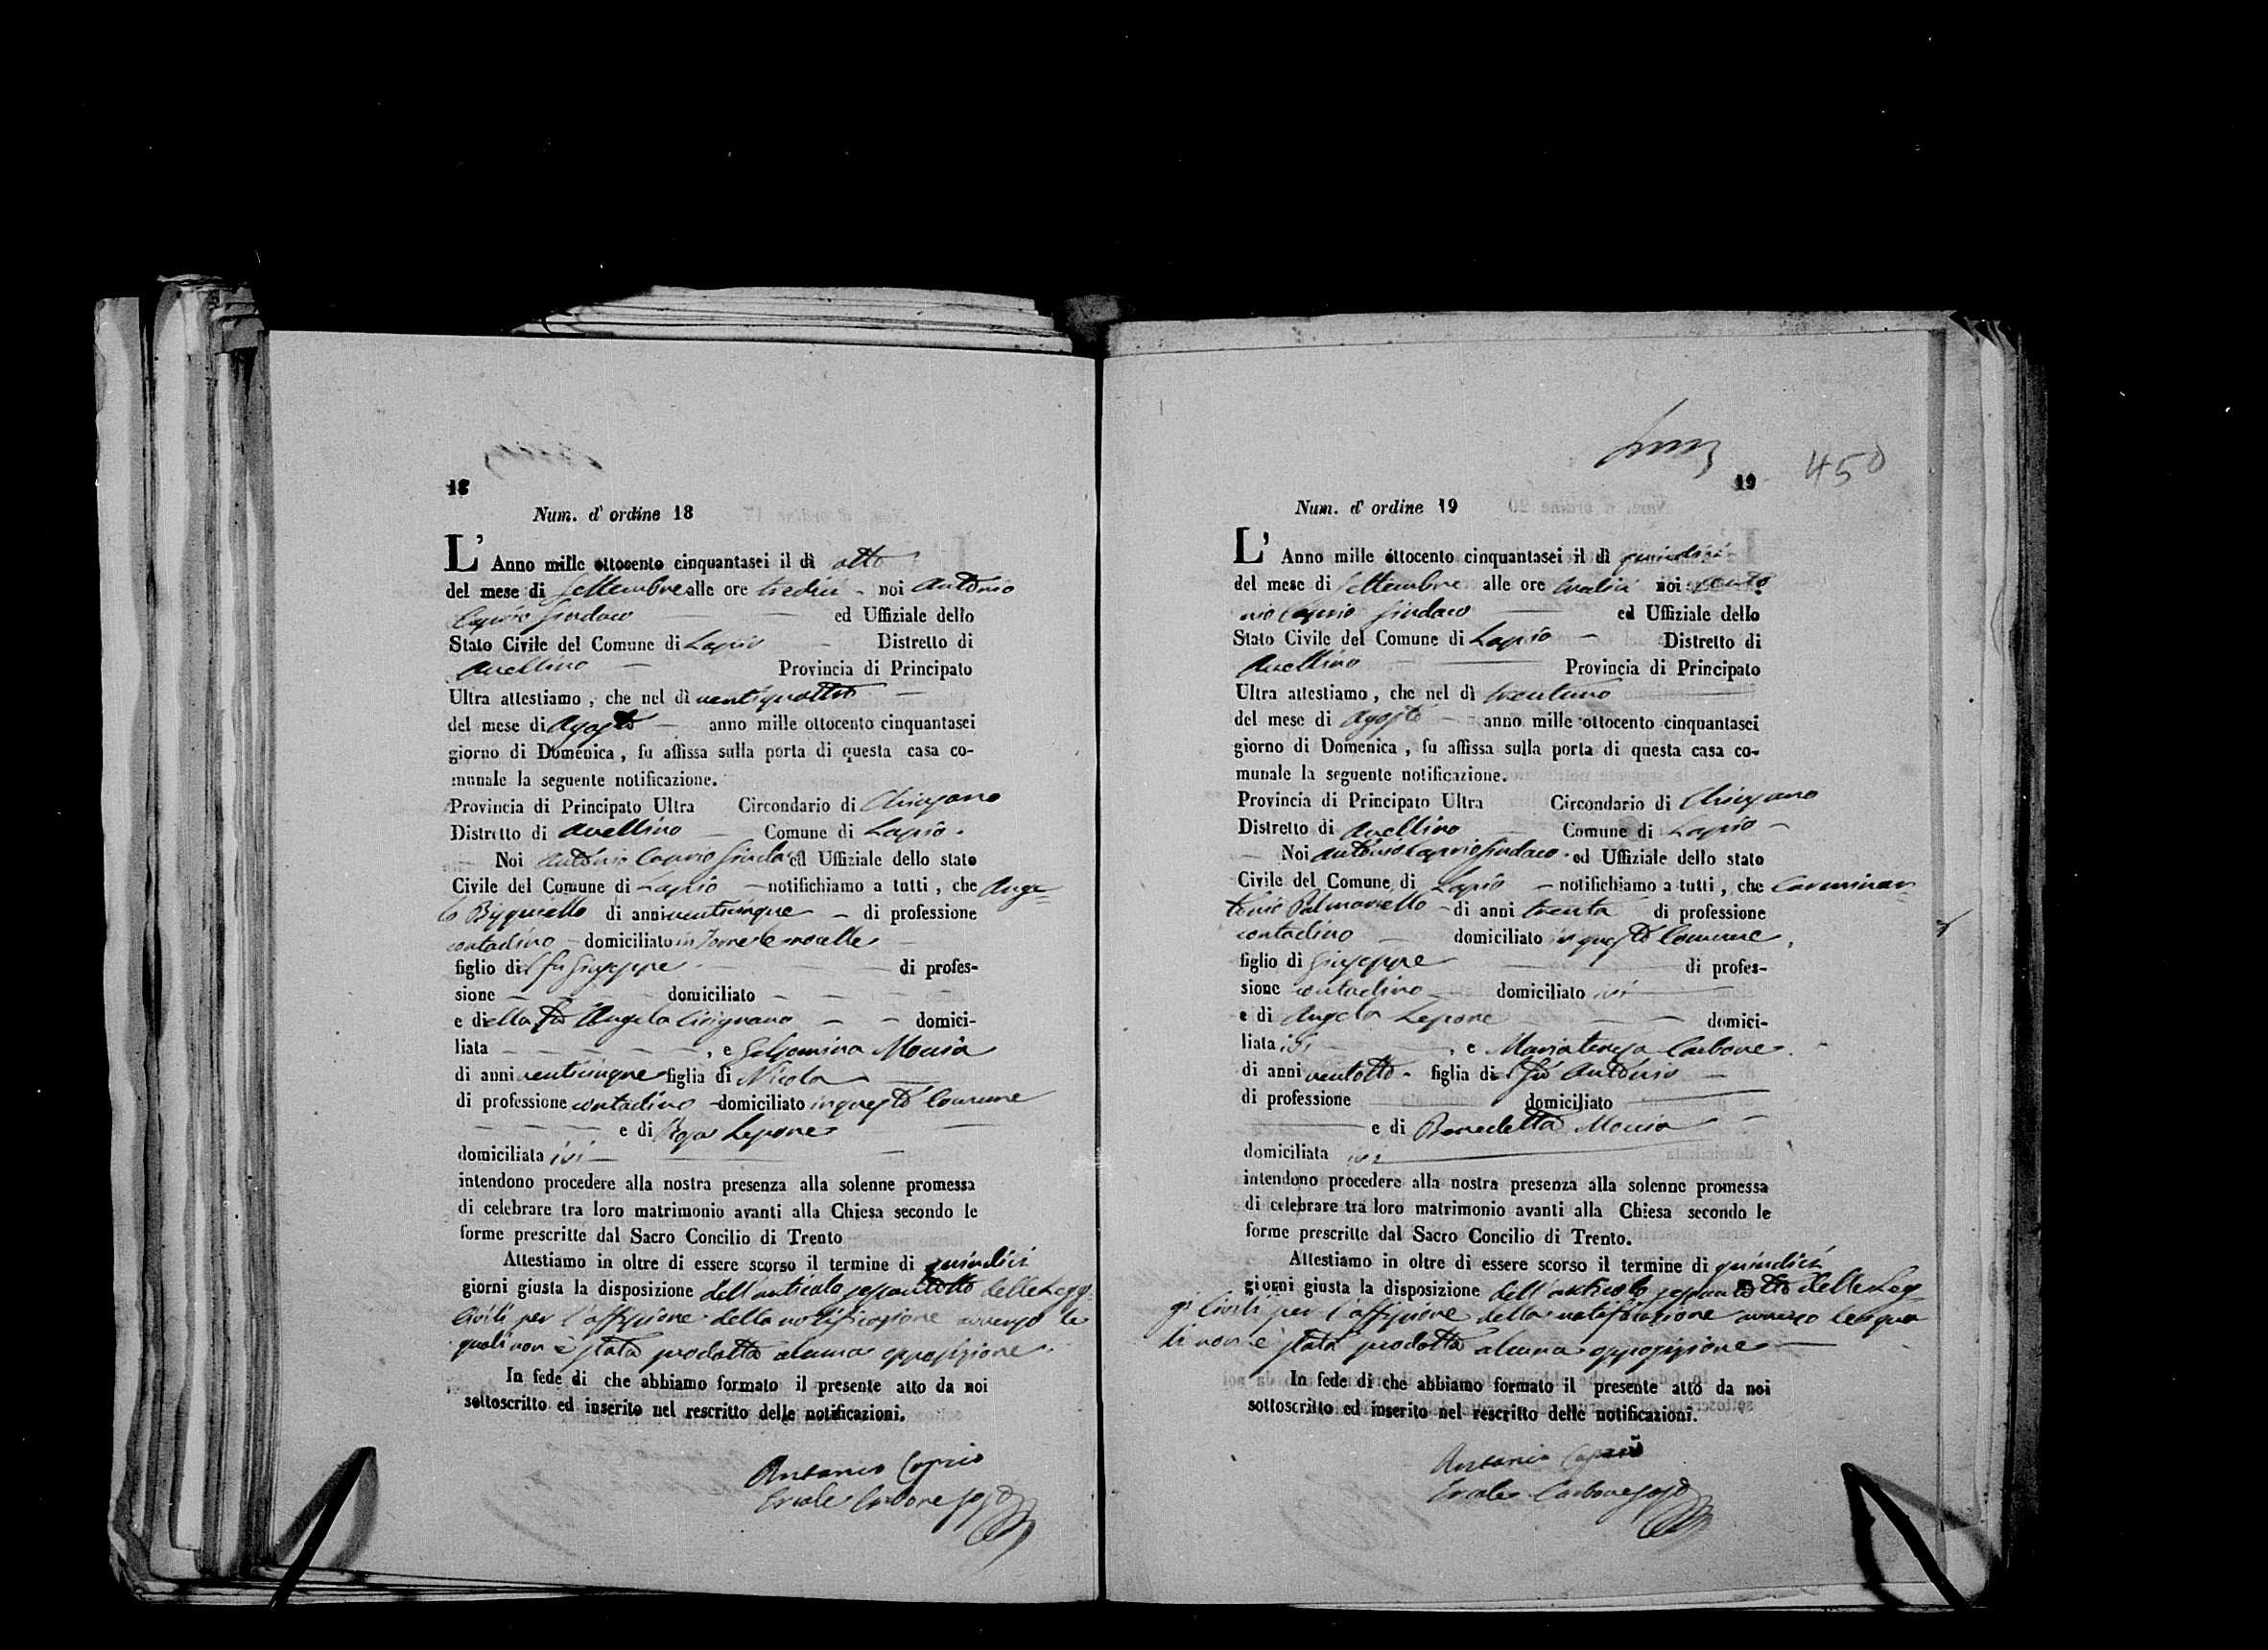 18
Num. d' ordine 18
L' Anno mille ottocento cinquantasei il dì otto
del mese di Settembre alle ore tredici noi Antonio
Caprio Sindaco ed Uffiziale dello
Stato Civile del Comune di Lapio Distretto di
Avellino Provincia di Principato
Ultra attestiamo, che nel dì ventiquattro
del mese di Agosto anno mille ottocento cinquantasei
giorno di Domenica, fu affissa sulla porta di questa casa co-
munale la seguente notificazione.
Provincia di Principato Ultra Circondario di Chiusano
Distretto di Avellino Comune di Lapio.
Noi Antonio Caprio Sindaco ed Uffiziale dello stato
Civile del Comune di Lapio notifichiamo a tutti, che Ange=
lo di anni venticinque di professione
contadino domiciliato in Torre le nocelle
figlio del fu Giuseppe di profes-
sione domiciliato
e della fu Angela Cirignano domici-
liata , e Gelsomina Moccia
di anni venticinque figlia di Nicola
di professione contadino domiciliato in questo Comune
e di Rosa Lepore
domiciliata ivi
intendono procedere alla nostra presenza alla solenne promessa
di celebrare tra loro matrimonio avanti alla Chiesa secondo le
forme prescritte dal Sacro Concilio di Trento
Attestiamo in oltre di essere scorso il termine di quindici
giorni giusta la disposizione dell'articolo sessantotto delle Leggi
Civili per l'affissione della notificazione avverso le
quali non è stata prodotta alcuna opposizione.
In fede di che abbiamo formato il presente atto da noi
sottoscritto ed inserito nel rescritto delle notificazioni.
Antonio Caprio
Ercole Carbone
19
450
Num. d' ordine 19
L' Anno mille ottocento cinquantasei il dì quindici
del mese di Settembre alle ore tredici noi Anto=
nio Caprio Sindaco ed Uffiziale dello
Stato Civile del Comune di Lapio Distretto di
Avellino Provincia di Principato
Ultra attestiamo, che nel dì trentuno
del mese di Agosto anno mille ottocento cinquantasei
giorno di Domenica, fu affissa sulla porta di questa casa co-
munale la seguente notificazione.
Provincia di Principato Ultra Circondario di Chiusano
Distretto di Avellino Comune di Lapio
Noi Antonio Caprio Sindaco ed Uffiziale dello stato
Civile del Comune di Lapio notifichiamo a tutti, che Carminan=
tonio Palmariello di anni trenta di professione
contadino domiciliato in questo Comune,
figlio di Giuseppe di profes-
sione contadino domiciliato ivi
e di Angela Lepore domici-
liata ivi , e Mariateresa Carbone
di anni ventotto figlia del fu Antonio
di professione domiciliato
e di Benedetta Moccia
domiciliata ivi
intendono procedere alla nostra presenza alla solenne promessa
di celebrare tra loro matrimonio avanti alla Chiesa secondo le
forme prescritte dal Sacro Concilio di Trento.
Attestiamo in oltre di essere scorso il termine di quindici
giorni giusta la disposizione dell'articolo sessantotto delle Leg
gi Civili per l'affissione della notificazione avverso le qua
li non è stata prodotta alcuna opposizione
In fede di che abbiamo formato il presente atto da noi
sottoscritto ed inserito nel rescritto delle notificazioni.
Antonio Caprio
Ercole Carbone